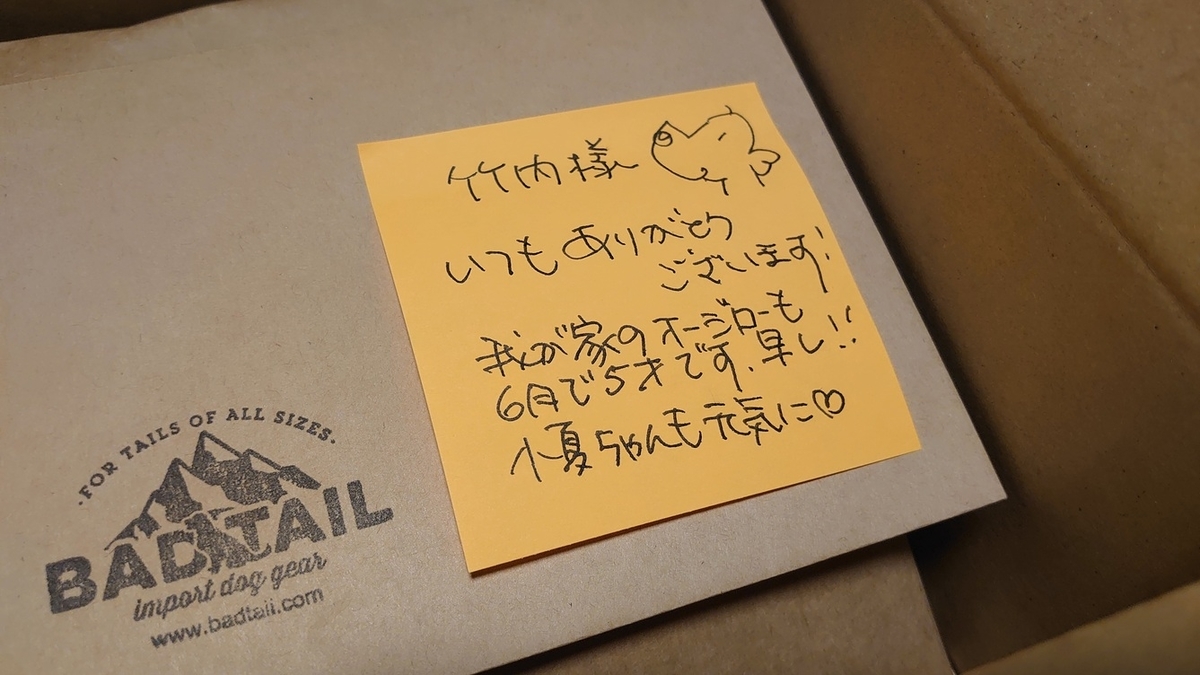 竹内様
いつもありがとう
ございます!
我が家のオージローも
6月で5才です.早し!!
小夏ちゃんも元気に♡
・FOR TAILS OF ALL SIZES.・
BADTAIL
import dog gear
www.badtail.com